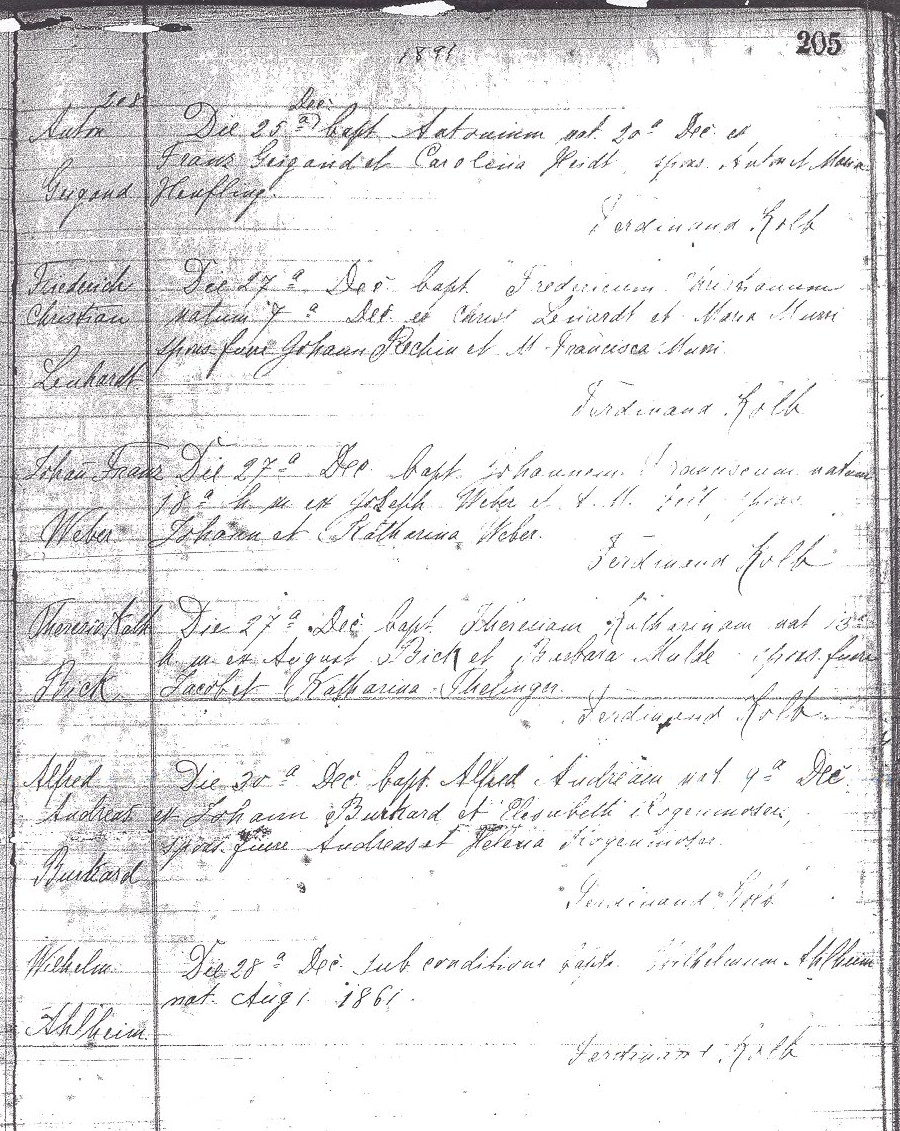 205
1891
208
Dec.
Anton Die 25 a) bapt Antonium nat. 20a Dec ex
Franz Geigand et Carolina Heidt, spons. Anton et Maria
Geigand Henfling.
Ferdinand Kolb
Friederich Die 27a Dec bapt. Fredericum Christianum
Christian natum 7a Dec ex Christ Lenardt et Maria Murri
spons. fuere Johann Rechin et M Francisca Murri
Lenhardt
Ferdinand Kolb
Johan Franz Die 27a Dec. bapt. Johannem Franciscum natum
18a h. m ex Joseph Weber et A. M. Zeil, spons
Weber Johann et Katharina Weber.
Ferdinand Kolb
Theresia Kath Die 27a Dec bapt. Theresiam Katharinam nat
h. m. ex August Bick et Barbara Mulde spons. fuere
Bick Jacob et Katharina Thelinger.
Ferdinand Kolb
Alfred Die 30a Dec bapt. Alfred Andream nat 9a Dec
Andreas ex Johann Burkard et Elisabeth Rogenmoser,
spons. fuere Andreas et Helena Rogenmoser
Burkard
Ferdinand Kolb
Wilhelm Die 28a Dec sub conditione bapt. Wilhelmum Ahlheim
nat. Aug 1. 1861.
Ahlheim.
Ferdinand Kolb